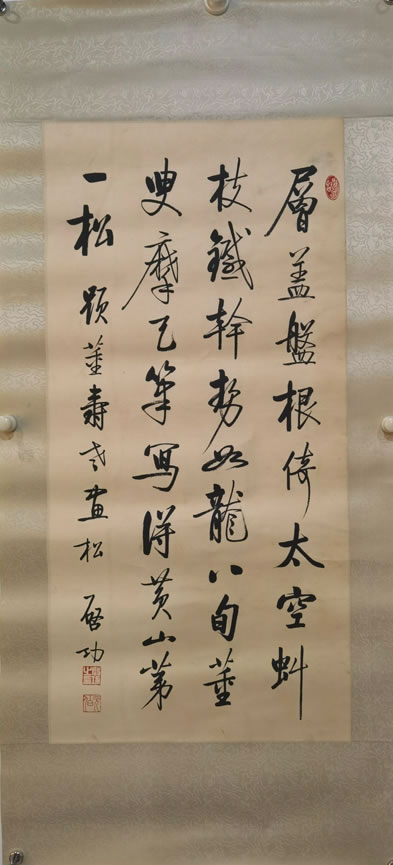 層盖盤根倚太空虯
枝鐵幹勢如龍八旬董
叟摩天筆寫得黄山第
一松 題董壽老畫松 啓功